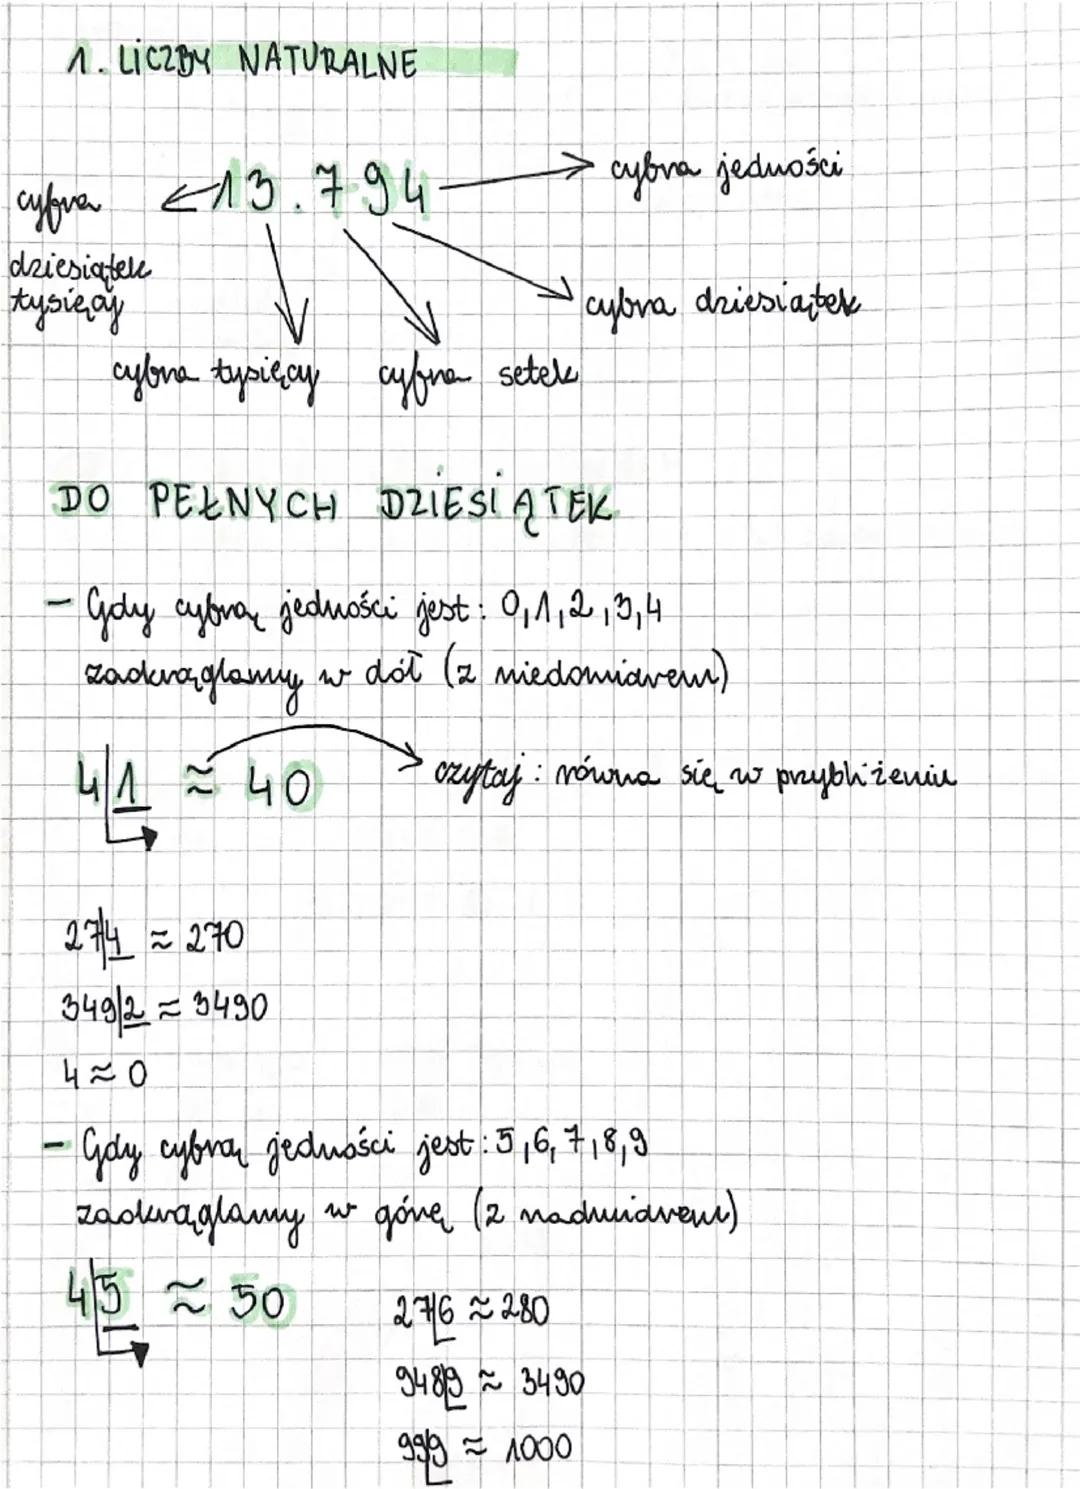 1. LICZBY NATURALNE
13.794
cyfra jedności
cyfra
dziesiątek
tysięcy
cyfra dziesiątek
cyfra tysięcy cyfra setek
DO PEŁNYCH DZIESIĄTEK
- Gdy cyfrą jedności jest: 0,1,2,3,4
zaokrąglamy w dół (z niedomiarem)
4|1 ≈ 40 czytaj: równa się w przybliżeniu
27|4 ≈ 270
349|2 ≈ 3490
4 ≈ 0
- Gdy cyfrą jedności jest: 5,6,7,8,9
zaokrąglamy w górę (z nadmiarem)
4|5 ≈ 50
27|6 ≈ 280
948|9 ≈ 3490
99|9 ≈ 1000